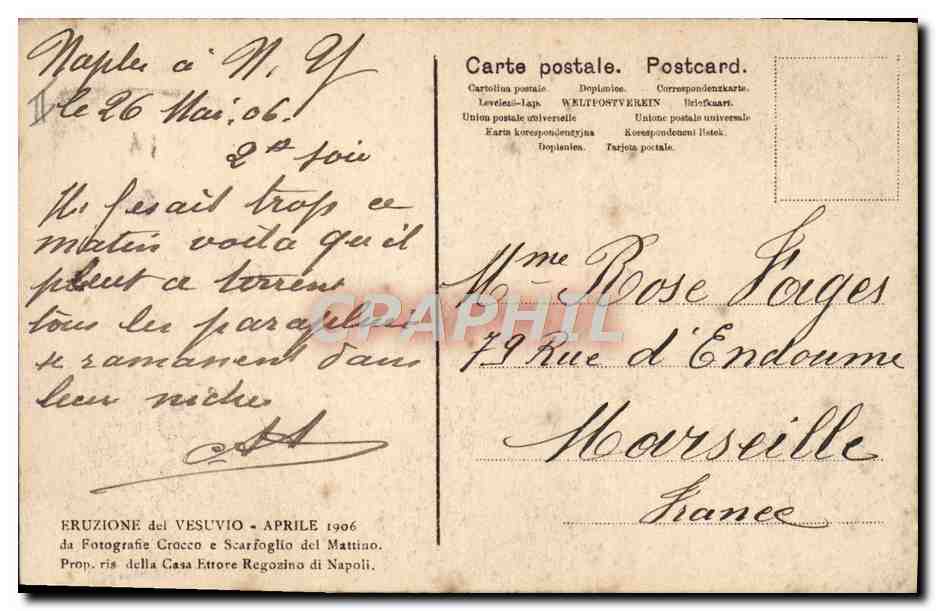 Naples à N. Y
II le 26 Mai. 06.
2e soir
Il fesait trop ce
matin voila qu'il
pleut a torrent
tous les parapluies
se ramanent dans
leur niches
Carte postale. Postcard.
Cartolina postale. Dopisnice. Correspondenzkarte.
Levelezö-Lap. WELTPOSTVEREIN Briefkaart.
Union postale universelle Unione postale universale
Karta korespondencyjna Korespondencni listek.
Dopisnica. Tarjeta postale.
Mme Rose Fages
79 Rue d'Endoume
Marseille
France
CPAPHIL
ERUZIONE del VESUVIO - APRILE 1906
da Fotografie Crocco e Scarfoglio del Mattino.
Prop. ris della Casa Ettore Regozino di Napoli.